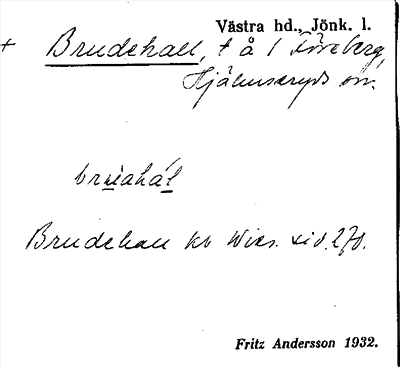 Västra hd., Jönk. l.
+ Brudehall, t å 1 Föreberg,
Hjälmseryds sn.
Brudehall kv Wies. sid. 270.
Fritz Andersson 1932.